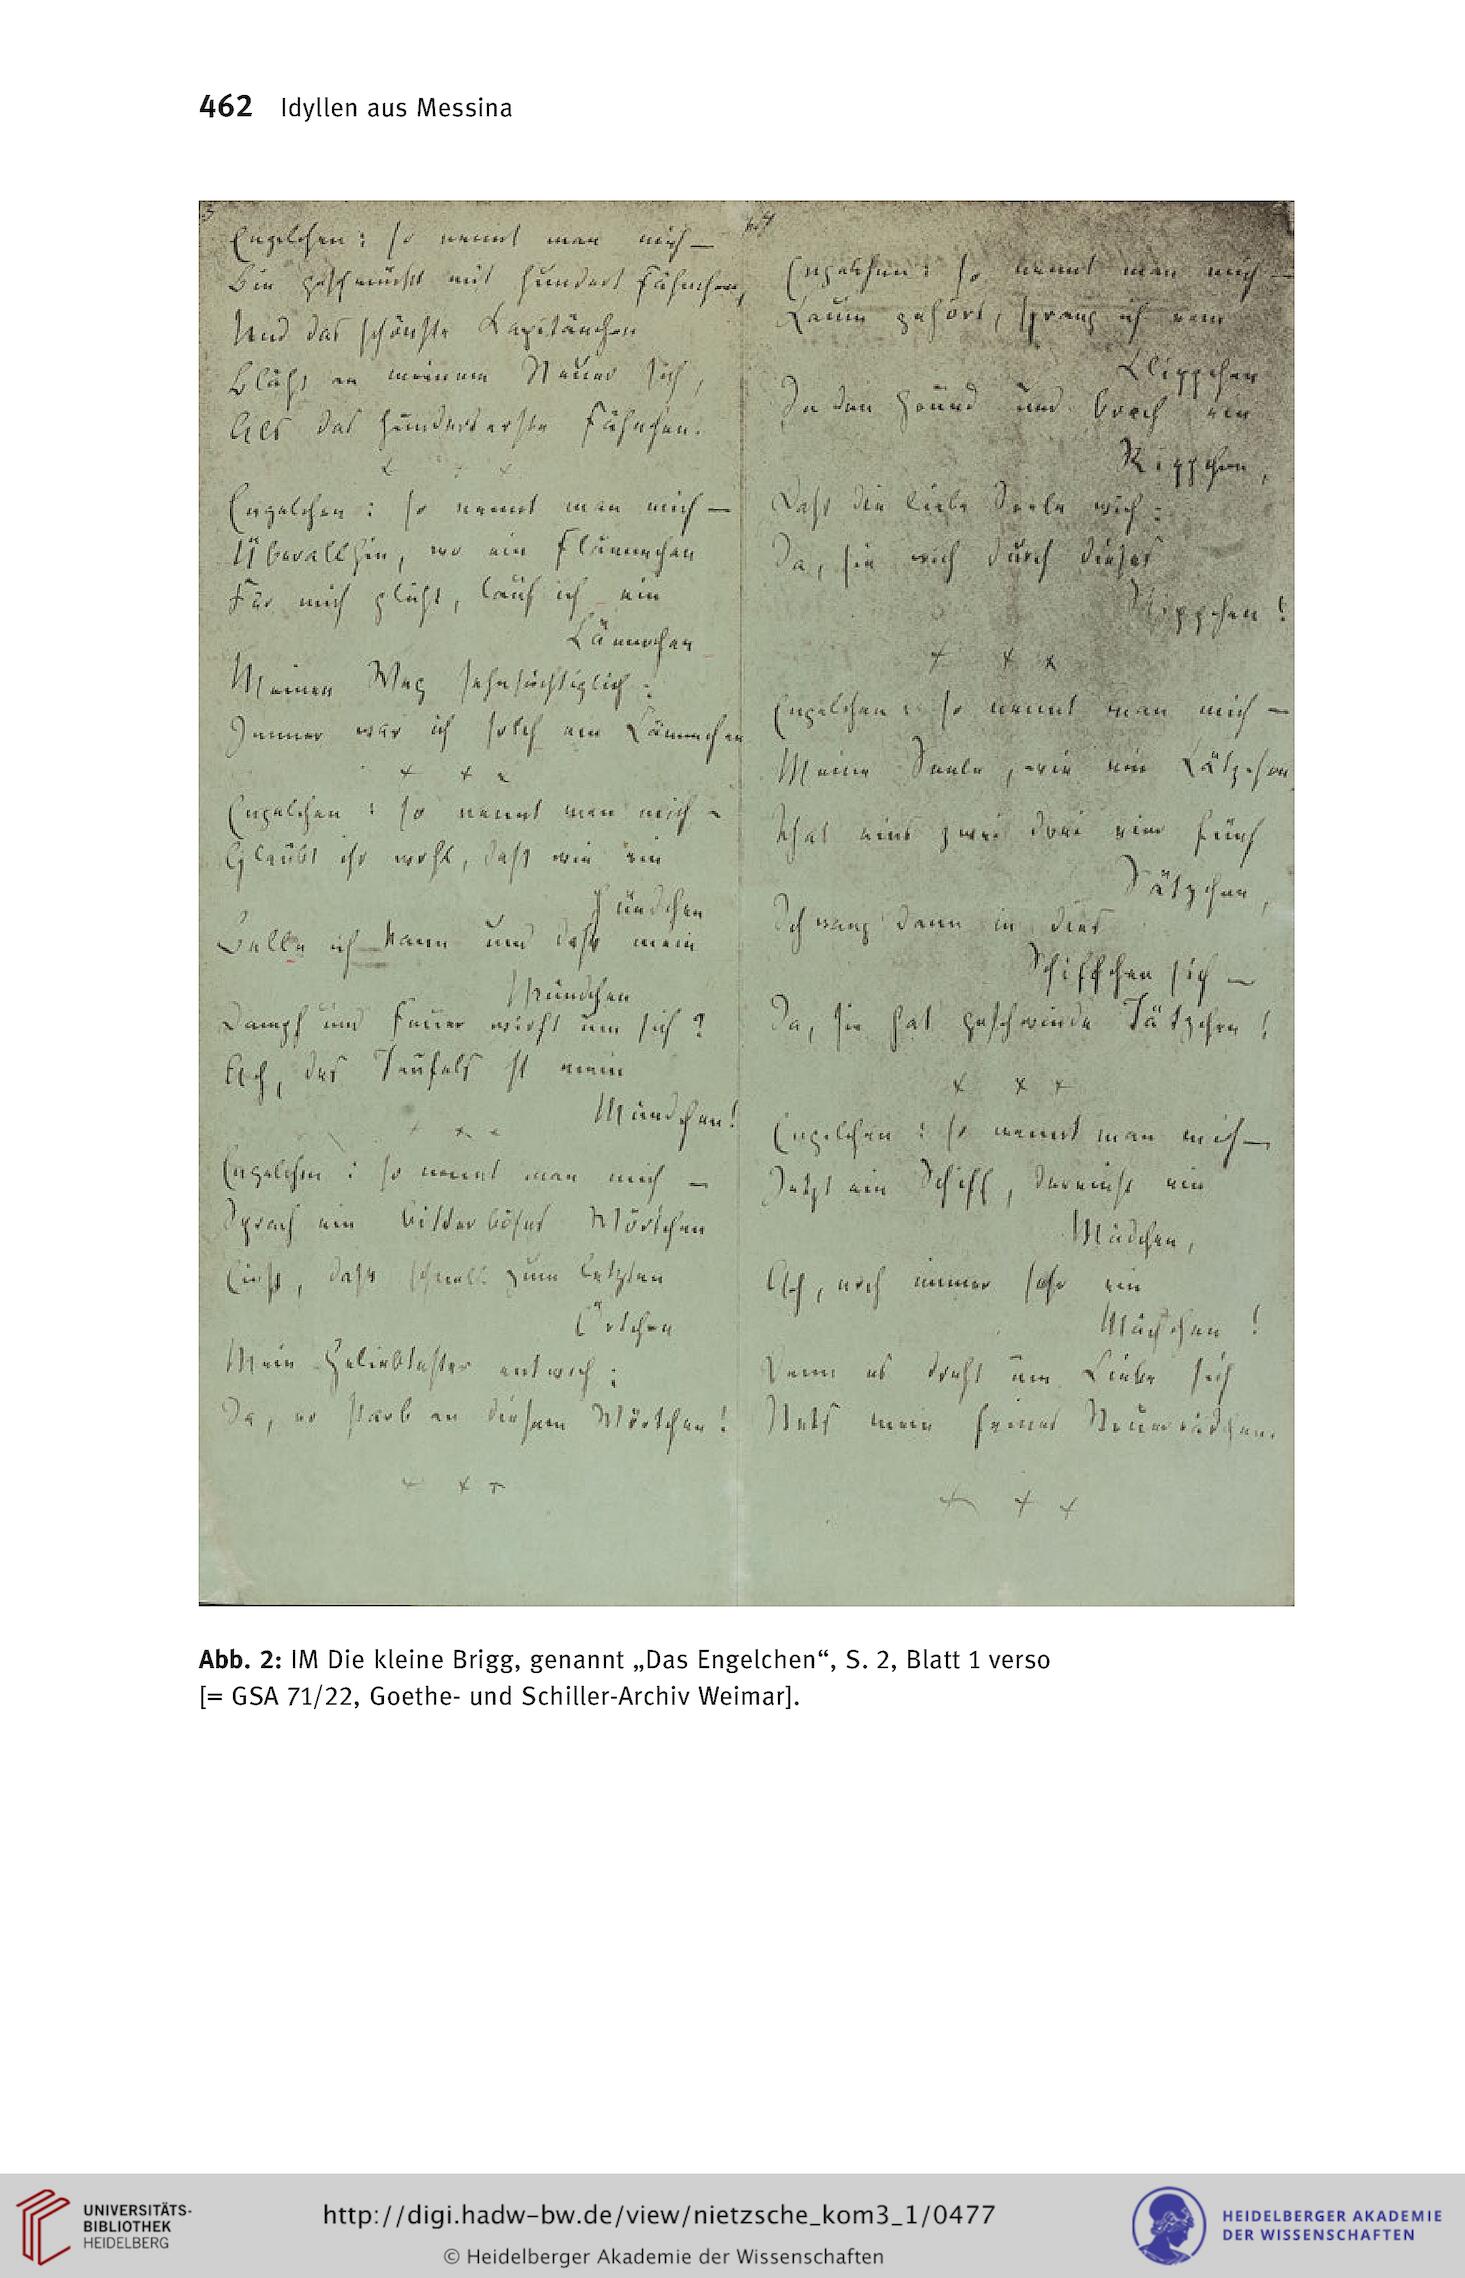 462 Idyllen aus Messina
3
Engelchen: so nennt man mich —
Bin geschmückt mit hundert Fähnchen,
Und das schönste Kapitänchen
Bläht an meinem Steuer sich,
Als das hunderterste Fähnchen.
Engelchen: so nennt man mich —
Überallhin, wo ein Flämmchen
Für mich glüht, lauf ich ein
Lämmchen
Meinen Weg sehnsüchtiglich:
Immer war ich solch ein Lämmchen
Engelchen: so nennt man mich —
Glaubt ihr wohl, daß wie ein
Hündchen
Belln ich kann und daß mein
Mündchen
Dampf und Feuer wirft um sich?
Ach, des Teufels ist mein
Mündchen!
Engelchen: so nennt man mich —
Sprach ein bitterböses Wörtchen
Einst, daß schnell zum letzten
Örtchen
Mein Geliebtester entwich:
Ja, er starb an diesem Wörtchen!
4
Engelchen: so nennt man mich —
Kaum gehört, sprang ich vom
Klippchen
In den Grund und brach ein
Rippchen,
Daß die liebe Seele wich:
Ja, sie wich durch dieses
Rippchen!
Engelchen: so nennt man mich —
Meine Seele, wie ein Kätzchen
That eins zwei drei vier fünf
Sätzchen,
Schwang dann in dies
Schiffchen sich —
Ja, sie hat geschwinde Tätzchen!
Engelchen: so nennt man mich —
Jetzt ein Schiff, dereinst ein
Mädchen,
Ach, noch immer sehr ein
Mädchen!
Denn es dreht um Liebe sich
Stets mein feines Steuerrädchen.
Abb. 2: IM Die kleine Brigg, genannt „Das Engelchen“, S. 2, Blatt 1 verso
[= GSA 71/22, Goethe- und Schiller-Archiv Weimar].
UNIVERSITÄTS-
BIBLIOTHEK
HEIDELBERG
http://digi.hadw-bw.de/view/nietzsche_kom3_1/0477
© Heidelberger Akademie der Wissenschaften
HEIDELBERGER AKADEMIE
DER WISSENSCHAFTEN